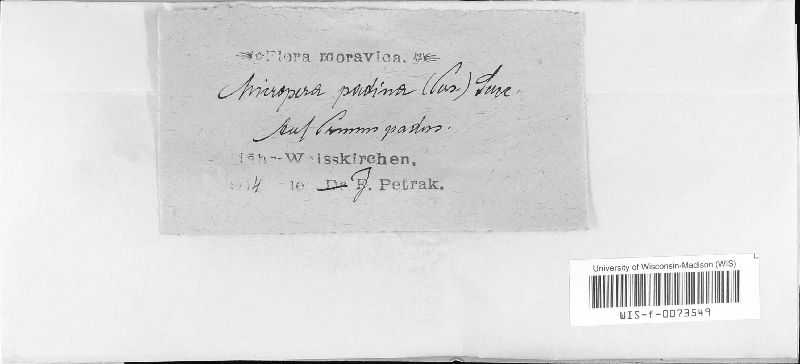 Flora moravica.
Micropera padina (Pers.) Sacc.
Auf Prunus padus.
Mähr-Weisskirchen,
F. Petrak.
University of Wisconsin-Madison (WIS)
WIS-f-0073549